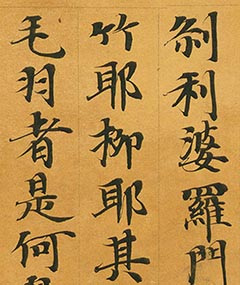 刹利婆羅門
竹耶柳耶其
毛羽者是何